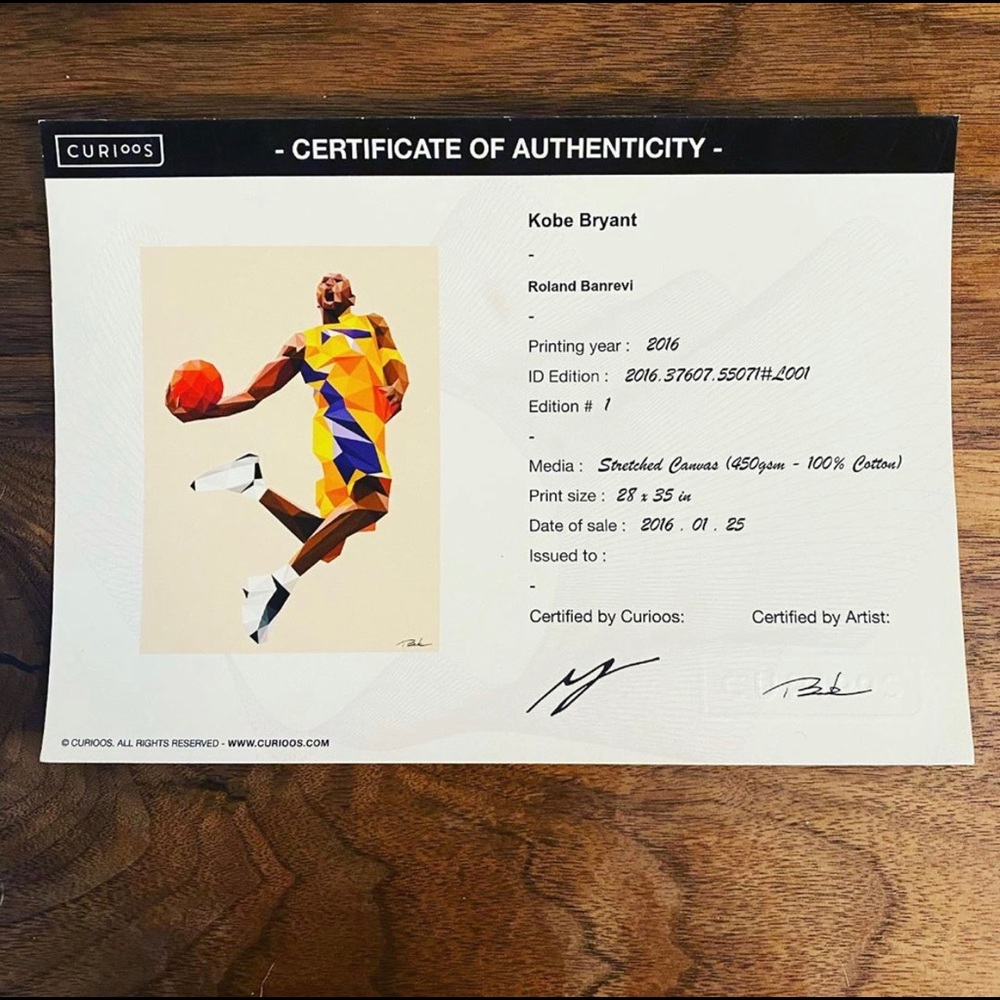 CURIOOS
- CERTIFICATE OF AUTHENTICITY -
Kobe Bryant
-
Roland Banrevi
-
Printing year : 2016
ID Edition : 2016.37607.55071#L001
Edition # 1
-
Media : Stretched Canvas (450gsm - 100% Cotton)
Print size : 28 x 35 in
Date of sale : 2016 . 01 . 25
Issued to :
-
Certified by Curioos: Certified by Artist:
© CURIOOS. ALL RIGHTS RESERVED - WWW.CURIOOS.COM